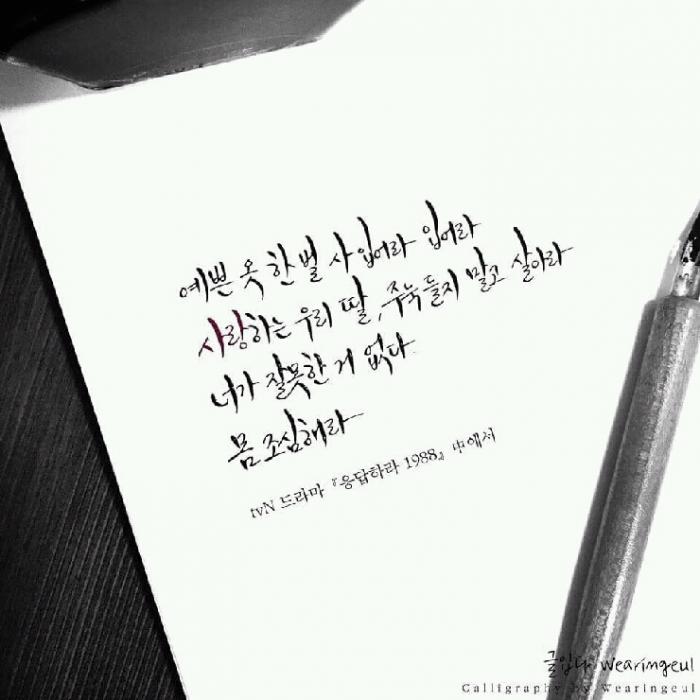 예쁜 옷 한벌 사 입어라 입어라
사랑하는 우리 딸, 주눅들지 말고 살아라
너가 잘못한 거 없다
몸 조심해라
tvN 드라마 『응답하라 1988』 中에서
글입다 Wearingeul
Calligraphy by Wearingeul